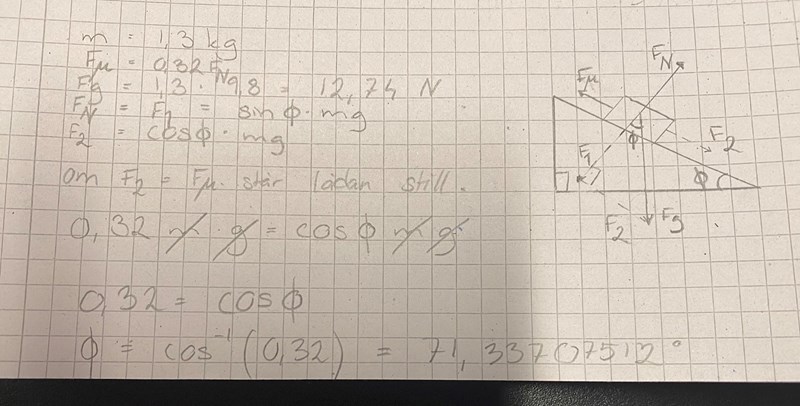 m = 1,3 kg
Fμ = 0,32 FN
Fg = 1,3 · 9,8 = 12,74 N
FN = F1 = sin ϕ · mg
F2 = cos ϕ · mg
om F2 = Fμ står lådan still.
0,32 m · g = cos ϕ m g
0,32 = cos ϕ
ϕ = cos⁻¹ (0,32) = 71,33707512°
FN
Fμ
F2
ϕ
F1
ϕ
F2
Fg